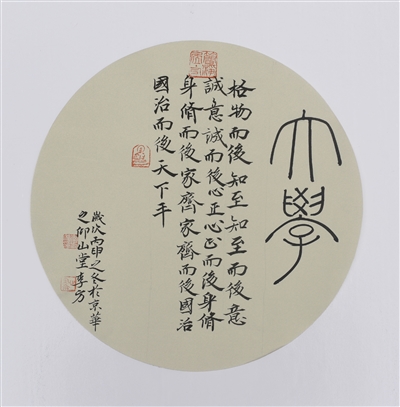 大學
格物而後知至知至而後意
誠意誠而後心正心正而後身脩
身脩而後家齊家齊而後國治
國治而後天下平
歲次丙申之冬於京華
之仰山堂李方